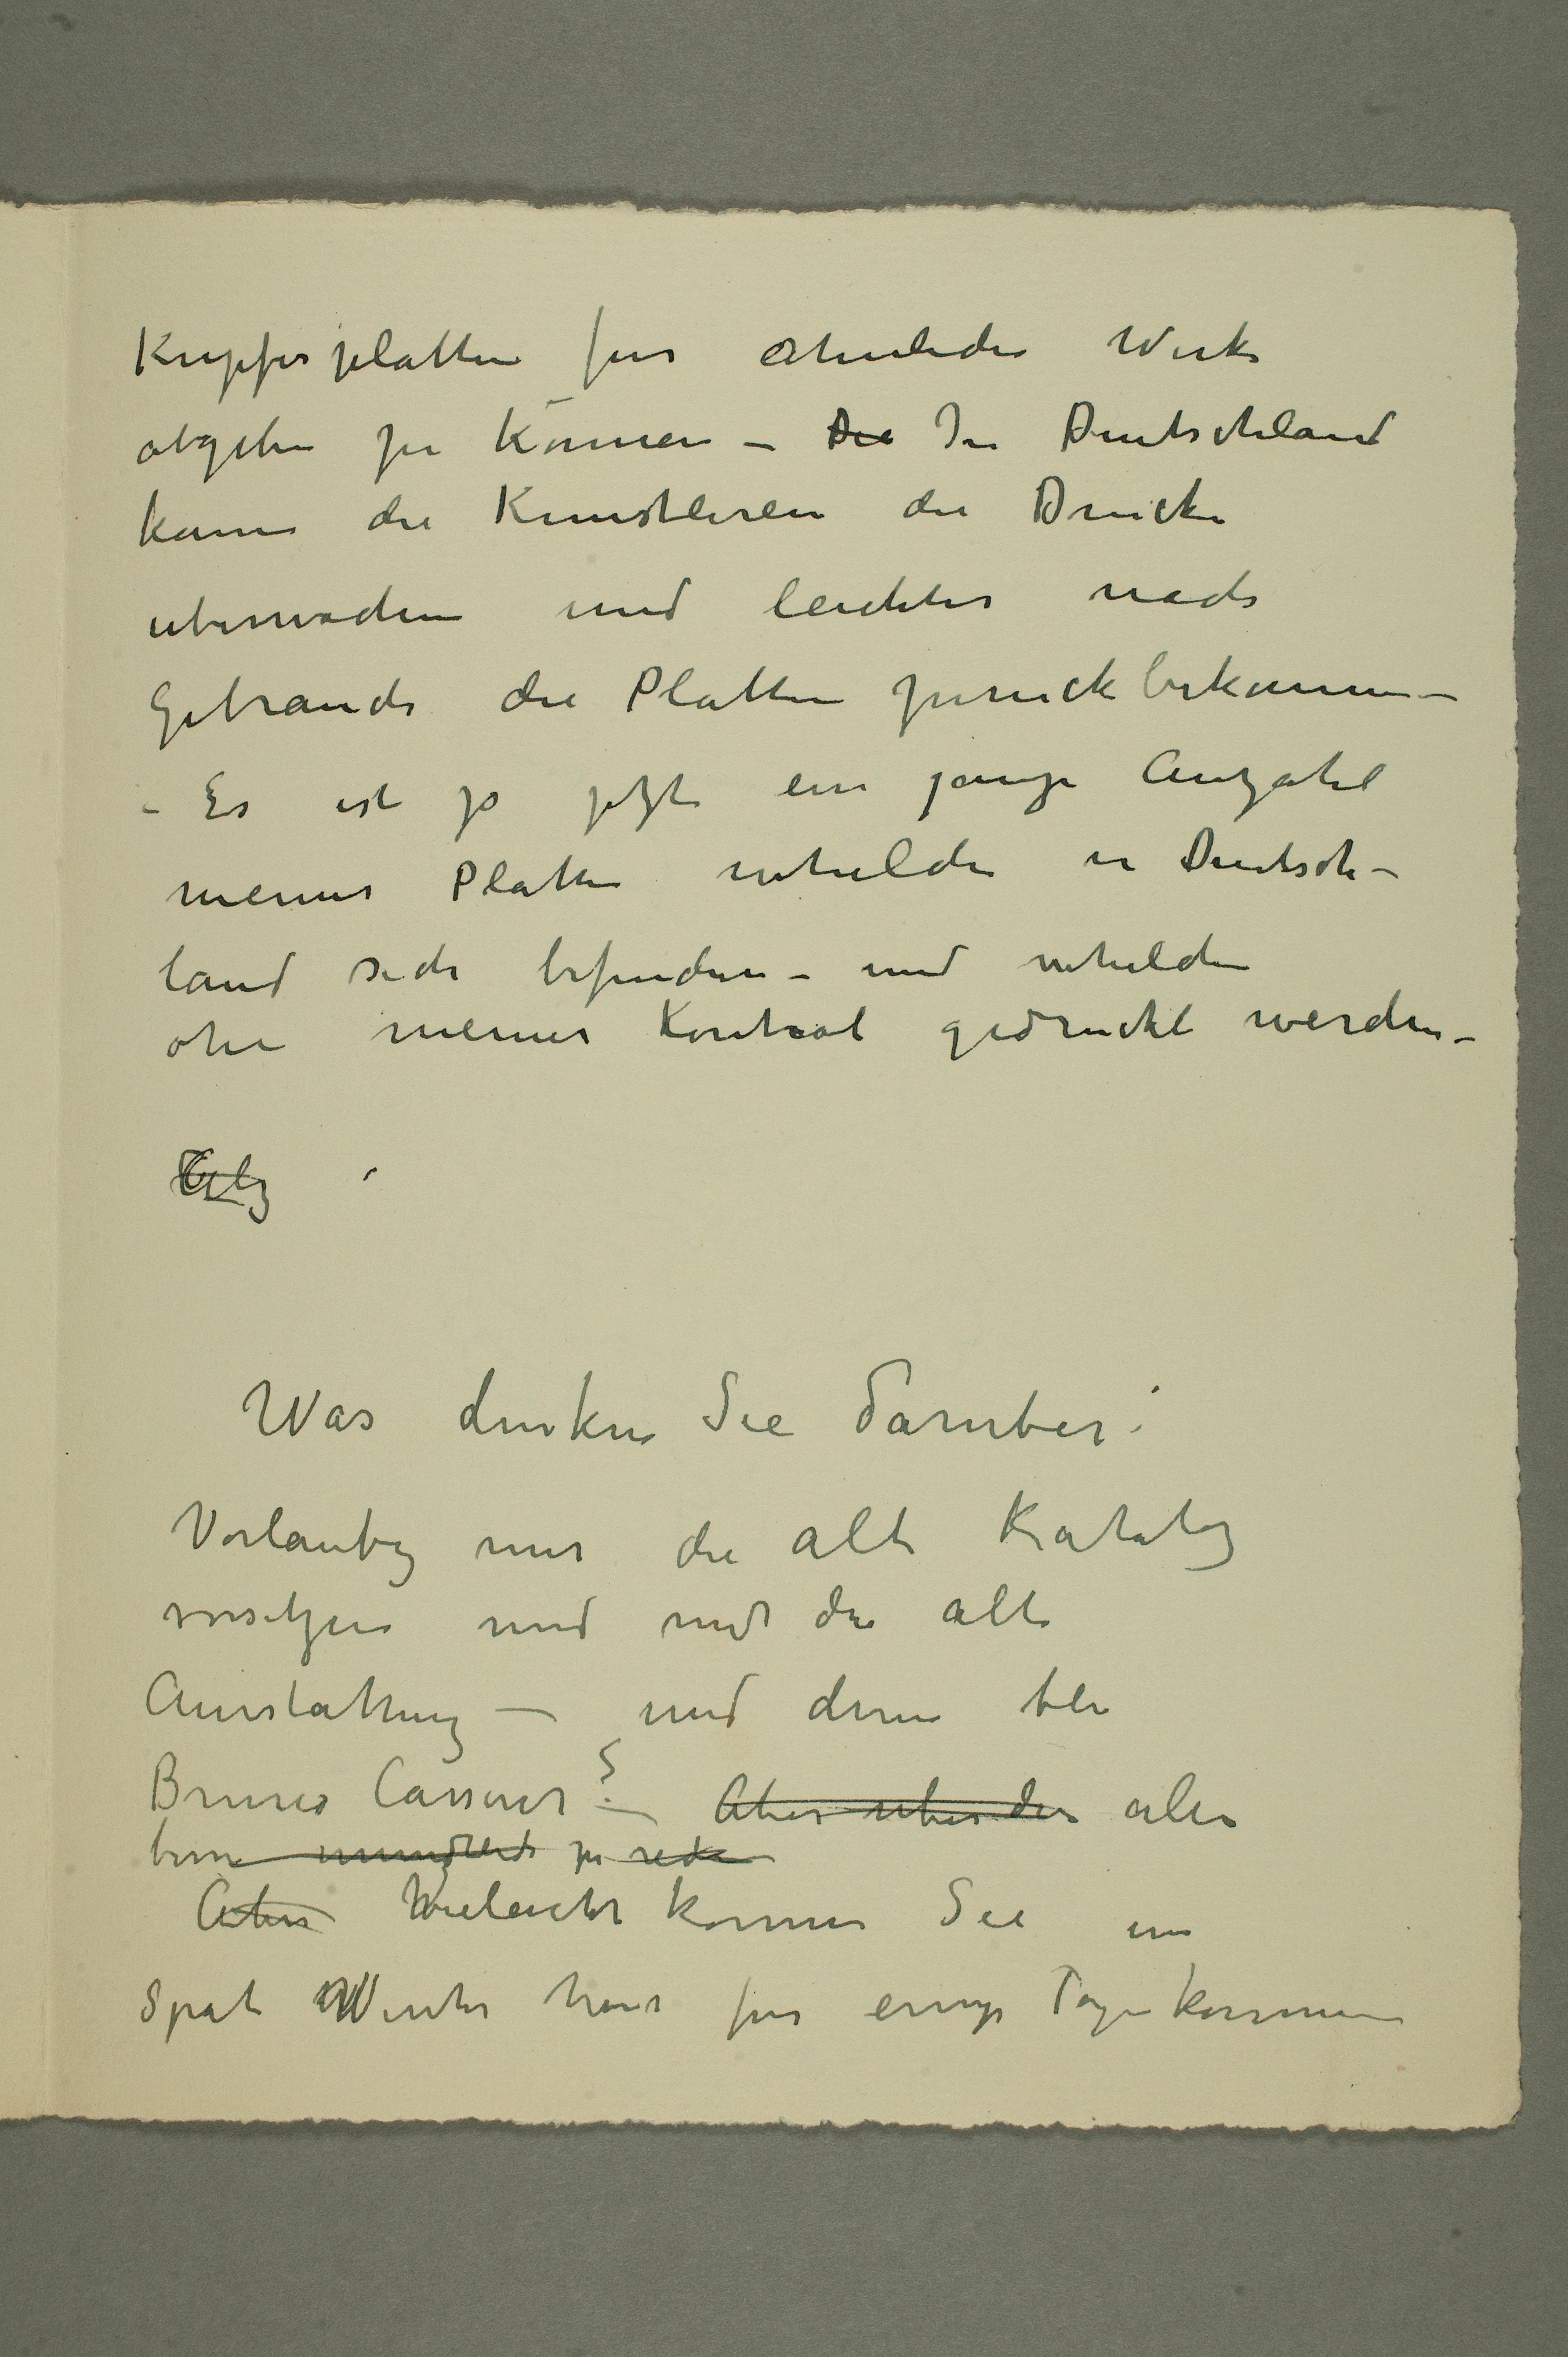 Kupferplatten fur ähnliche Werke
abgeben zu können – Die In Deutschland
kann die Kunstleren die Drucke
uberwachen und leichter nach
Gebrauch die Platten zuruckbekommen –
– Es ist ja jetzt ein ganze Anzahl
meiner Platten whelche in Deutsch-
land sich befinden – und whelche
ohne meiner Kontrol gedruckt werden –
Was denken Sie daruber?
Vorlaufig nur die alte Katalog
vorsetzen und mit die alte
Ausstattung – und denn bei
Bruno Cassirer? – Aber uber die alles
besser mundlich zu reden
Aber Vieleicht konnen Sie im
Spät Winter hier fur einige Tage kommen